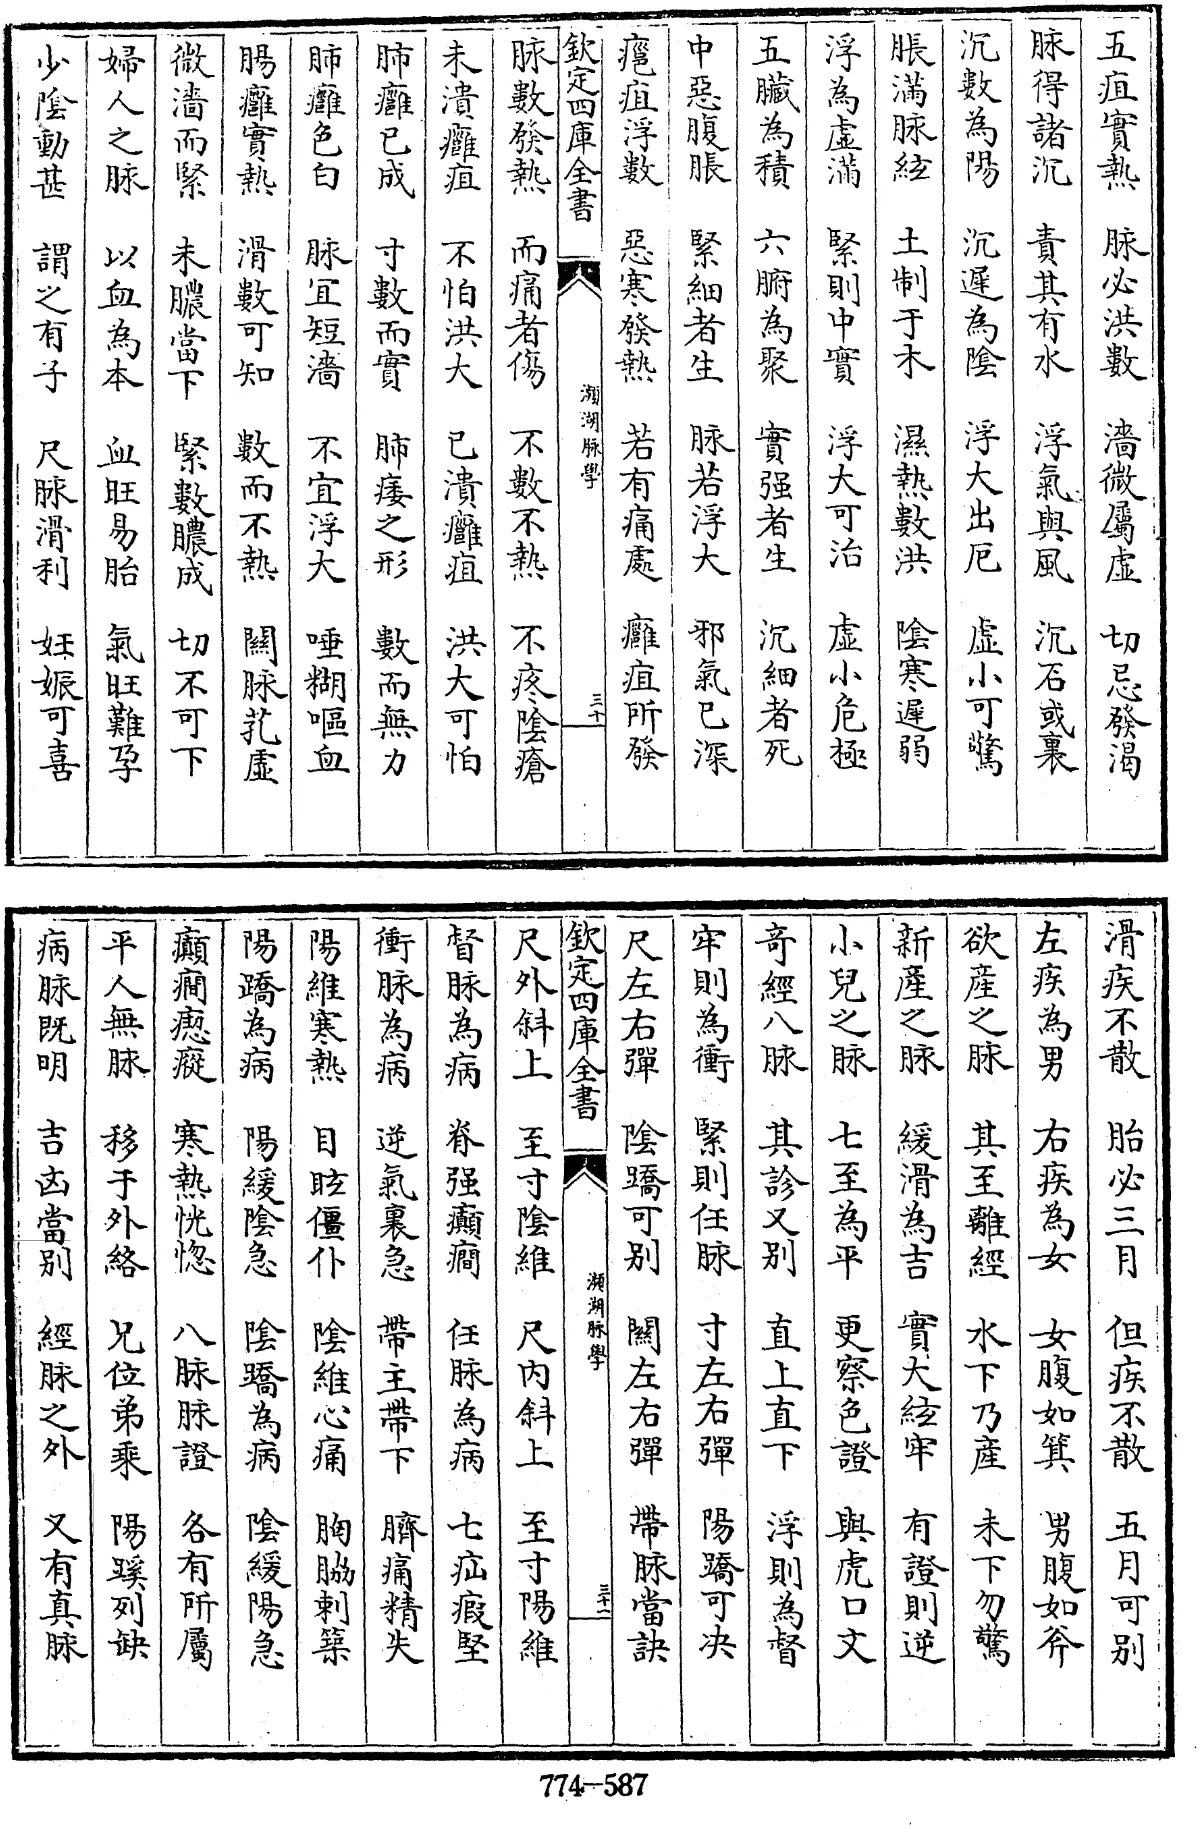 五疸實熱 脉必洪數 濇微屬虛 切忌發渴
脉得諸沉 責其有水 浮氣與風 沉石或裏
沉數為陽 沉遲為陰 浮大出厄 虛小可驚
脹滿脉絃 土制于木 濕熱數洪 陰寒遲弱
浮為虛滿 緊則中實 浮大可治 虛小危極
五臟為積 六腑為聚 實强者生 沉細者死
中惡腹脹 緊細者生 脉若浮大 邪氣已深
癰疽浮數 惡寒發熱 若有痛處 癰疽所發
欽定四庫全書 瀕湖脉學 三十
脉數發熱 而痛者傷 不數不熱 不疼陰瘡
未潰癰疽 不怕洪大 已潰癰疽 洪大可怕
肺癰已成 寸數而實 肺痿之形 數而無力
肺癰色白 脉宜短濇 不宜浮大 唾糊嘔血
腸癰實熱 滑數可知 數而不熱 關脉芤虛
微濇而緊 未膿當下 緊數膿成 切不可下
婦人之脉 以血為本 血旺易胎 氣旺難孕
少陰動甚 謂之有子 尺脉滑利 妊娠可喜
滑疾不散 胎必三月 但疾不散 五月可别
左疾為男 右疾為女 女腹如箕 男腹如斧
欲産之脉 其至離經 水下乃産 未下勿驚
新産之脉 緩滑為吉 實大絃牢 有證則逆
小兒之脉 七至為平 更察色證 與虎口文
奇經八脉 其診又别 直上直下 浮則為督
牢則為衝 緊則任脉 寸左右彈 陽蹻可决
尺左右彈 陰蹻可别 關左右彈 帶脉當訣
欽定四庫全書 瀕湖脉學 三十一
尺外斜上 至寸陰維 尺内斜上 至寸陽維
督脉為病 脊强癲癇 任脉為病 七疝瘕堅
衝脉為病 逆氣裏急 帶主帶下 臍痛精失
陽維寒熱 目眩僵仆 陰維心痛 胸脇刺築
陽蹻為病 陽緩陰急 陰蹻為病 陰緩陽急
癲癇瘛瘲 寒熱恍惚 八脉脉證 各有所屬
平人無脉 移于外絡 兄位弟乘 陽蹊列缺
病脉旣明 吉凶當别 經脉之外 又有真脉
774-587